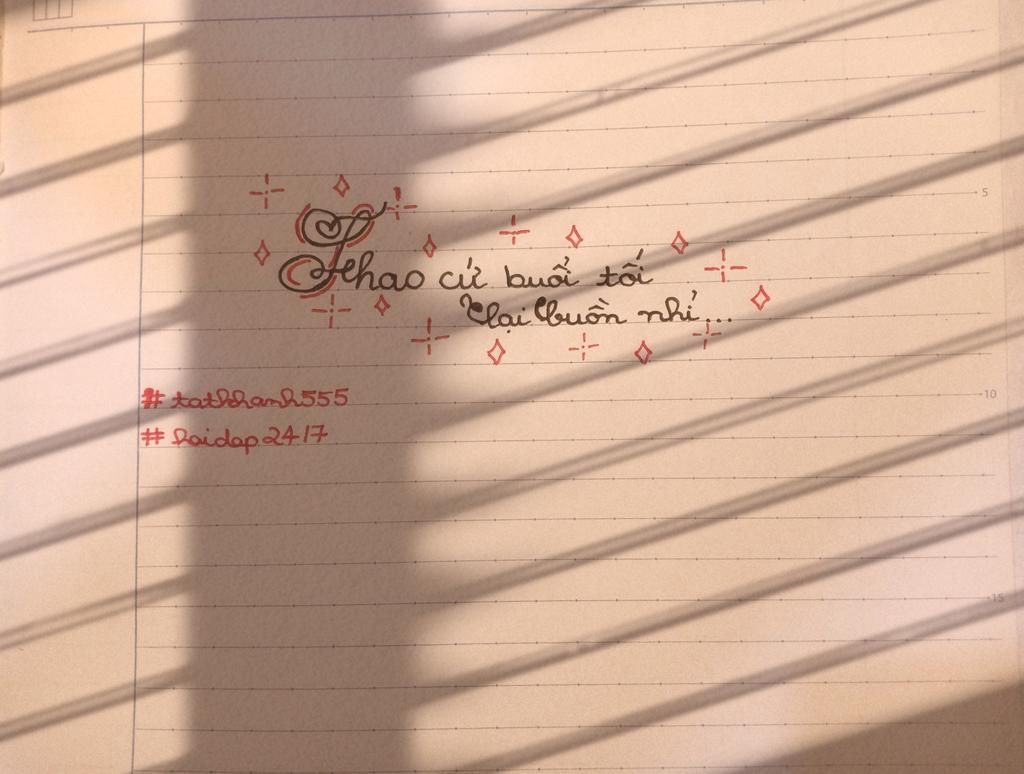 Thao cứ buổi tối
lại buồn nhỉ...
# tathhanh555
# haidap2417
5
10
15